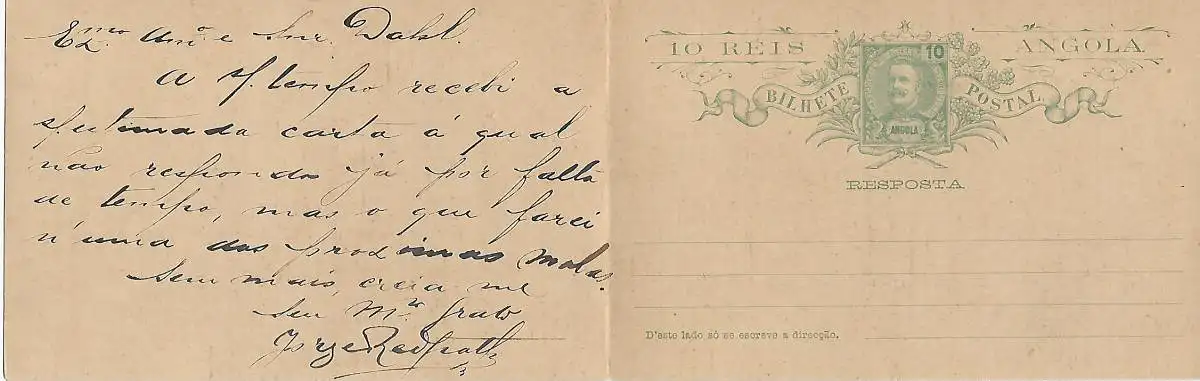 Exmo. Amo. e Snr. Dahl.
A s/ tempo recebi a
s/ estimada carta á qual
não respondo já por falta
de tempo, mas o que farei
n'uma das proximas malas.
Sem mais, creia me
Seu Mto. Grato
Jorge
10 RÉIS
ANGOLA
10
ANGOLA
BILHETE POSTAL
RESPOSTA
D'este lado só se escreve a direcção.